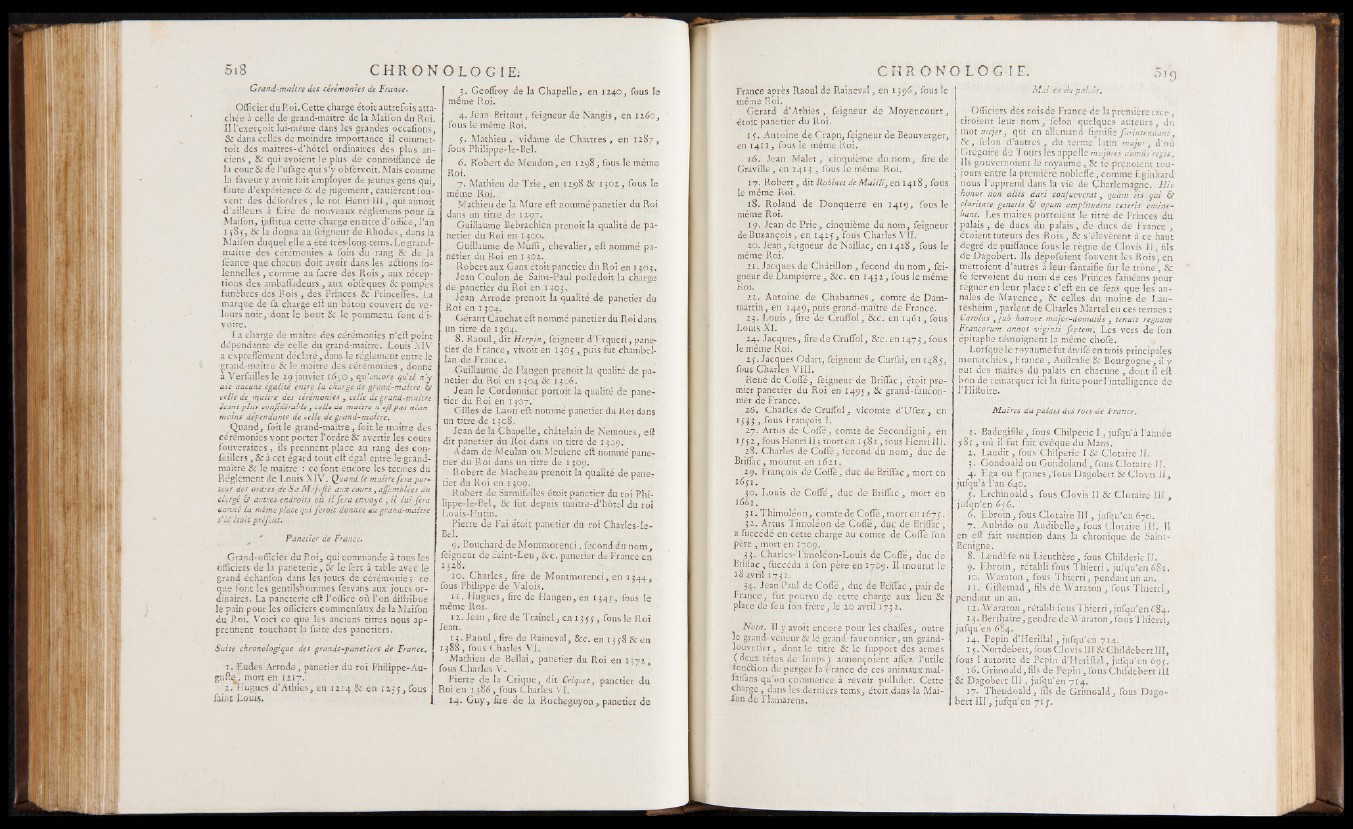 518
CHRONOLOGIE.
Grand-maître des cérémonies de France.
Officier du Roi. Cette charge étoit autrefois atta-
chée à celle de grand-maître de la Maison du Roi.
Il l'exerçoit lui-même dans les grandes occasions,
& dans celles de moindre importance il commet-
toit des maîtres-d'hôtel ordinaires des plus an-
ciens, & qui avoient le plus de connoissance de
la cour & de l'usage qui s'y observoit. Mais comme
la faveur y avoit fait employer de jeunes gens qui,
faute d'expérience & de jugement, causèrent sou-
vent des désordres, le roi Henri III, qui aimoit
d'ailleurs à faire de nouveaux réglemens pour sa
Maison, institua cette charge en titre d'office, l'an
1585, & la donna au seigneur de Rhodes, dans la
Maison duquel elle a été très-long-tems. Le grand-
maître des cérémonies a soin du rang & de la
séance que chacun doit avoir dans les actions so-
lennelles, comme au sacre des Rois, aux récep-
tions des ambassadeurs, aux obsèques & pompes
funèbres des Rois, des Princes & Princesses. La
marque de sa charge est un bâton couvert de ve-
lours noir, dont le bout & le pommeau sont d'i-
voire.
La charge de maître des cérémonies n'est point
dépendante de celle du grand-maître. Louis XIV
a expressément déclaré, dans le réglement entre le
grand-maître & le maître des cérémonies, donné
à Versailles le 29 janvier 1650, qu'encore qu'il n'y
ait aucune égalité entre la charge de grand-maître &
celle de maître des cérémonies, celle de grand-maître
étant plus considérable, celle de maître n'est pas néan-
moins dépendante de celle de grand-maître.
Quand, soit le grand-maître, soit le maître des
cérémonies vont porter l'ordre & avertir les cours
souveraines, ils prennent place au rang des con-
seillers, & à cet égard tout est égal entre le grand-
maître & le maître : ce sont encore les termes du
Réglement de Louis XIV. Quand le maître sera por-
teur des ordres de Sa Majesté aux cours, assemblées du
clergé & autres endroits où il sera envoyé, il lui sera
donné la même place qui seroit donnée au grand-maître
s'il étoit présent.
Panetier de France.
Grand-officier du Roi, qui commande à tous les
officiers de la paneterie, & le sert à table avec le
grand échanson dans les jours de cérémonie; ce
que font les gentilshommes servans aux jours or-
dinaires. La paneterie est l'office où l'on distribue
le pain pour les officiers commensaux de la Maison
du Roi. Voici ce que les anciens titres nous ap-
prennent touchant la suite des panetiers.
Suite chronologique des grands-panetiers de France.
1. Eudes Arrode, panetier du roi Philippe-Au-
guste, mort en 1217.
2. Hugues d'Athies, en 1224 & en 1235, sous
saint Louis.
3. Geoffroy de la Chapelle, en 1240, sous le
même Roi.
4. Jean Britaut, seigneur de Nangis, en 1260,
sous le même Roi.
5. Mathieu, vidame de Chartres, en 1287,
sous Philippe-le-Bel.
6. Robert de Meudon, en 1298, sous le même
Roi.
7. Mathieu de Trie, en 1298 & 1302, sous le
même Roi.
Mathieu de la Mure est nommé panetier du Roi
dans un titre de 1297.
Guillaume Bebrachien prenoit la qualité de pa-
netier du Roi en 1300.
Guillaume de Mussi, chevalier, est nommé pa-
netier du Roi en 1302.
Robert aux Gans étoit panetier du Roi en 1303.
Jean Coulon de Saint-Paul possédoit la charge
de panetier du Roi en 1303.
Jean Arrode prenoit la qualité de panetier du
Roi en 1304.
Gérant Cauchat est nommé panetier du Roi dans
un titre de 1304.
8. Raoul, dit Herpin, seigneur d'Erqueri, pane-
tier de France, vivoit en 1305, puis fut chambel-
lan de France.
Guillaume de Hangen prenoit la qualité de pa-
netier du Roi en 1304 & 1306.
Jean le Cordonnier portoit la qualité de pane-
tier du Roi en 1307.
Gilles de Laon est nommé panetier du Roi dans
un titre de 1308.
Jean de la Chapelle, châtelain de Nemours, est
dit panetier du Roi dans un titre de 1309.
Adam de Meulan ou Meulenc est nommé pane-
tier du Roi dans un titre de 1309.
Robert de Macheau prenoit la qualité de pane-
tier du Roi en 1309.
Robert de Sarniselles étoit panetier du roi Phi-
lippe-le-Bel, & fut depuis maître-d'hôtel du roi
Louis-Hutin.
Pierre de Fai étoit panetier du roi Charles-le-
Bel.
9. Bouchard de Montmorenci, second du nom,
seigneur de Saint-Leu, &c. panetier de France en
1328.
10. Charles, sire de Montmorenci, en 1344,
sous Philippe de Valois.
11. Hugues, sire de Hangen, en 1345, sous le
même Roi.
12. Jean, sire de Traînel, en 1355, sous le Roi
Jean.
13. Raoul, sire de Raineval, &c. en 1358 & en
1388, sous Charles VI.
Mathieu de Bellai, panetier du Roi en 1372,
sous Charles V.
Pierre de la Crique, dit Criquet, panetier du
Roi en 1386, sous Charles VI.
14. Guy, sire de la Rocheguyon, panetier de
CHRONOLOGIE.
519
France après Raoul de Raineval, en 1396, sous le
même Roi.
Gerard d'Athies, seigneur de Moyencourt,
étoit panetier du Roi.
15. Antoine de Crapn, seigneur de Beauverger,
en 1411, sous le même Roi.
16. Jean Malet, cinquième du nom, sire de
Graville, en 1413, sous le même Roi.
17. Robert, dit Robinet de Mailli, en 1418, sous
le même Roi.
18. Roland de Donquerre en 1419, sous le
même Roi.
19. Jean de Prie, cinquième du nom, seigneur
de Buzançois, en 1425, sous Charles VII.
20. Jean, seigneur de Naillac, en 1428, sous le
même Roi.
21. Jacques de Châtillon, second du nom, sei-
gneur de Dampierre, &c. en 1432, sous le même
Roi.
22. Antoine de Chabannes, comte de Dam-
martin, en 1449, puis grand-maître de France.
23. Louis, sire de Crussol, &c. en 1461, sous
Louis XI.
24. Jacques, sire de Crussol, &c. en 1473, sous
le même Roi.
25. Jacques Odart, seigneur de Cursai, en 1485,
sous Charles VIII.
René de Cossé, seigneur de Brissac, étoit pre-
mier panetier du Roi en 1495, & grand-faucon-
nier de France.
26. Charles de Crussol, vicomte d'Usez, en
1533, sous François I.
27. Artus de Cossé, comte de Secondigni, en
1552, sous Henri II; mort en 1582, sous Henri III.
28. Charles de Cossé, second du nom, duc de
Brissac, mourut en 1621.
29. François de Cossé, duc de Brissac, mort en
1651.
30. Louis de Cossé, duc de Brissac, mort en
1661.
31. Thimoléon, comte de Cossé, mort en 1675.
32. Artus Timoléon de Cossé, duc de Brissac,
a succédé en cette charge au comte de Cossé son
père, mort en 1709.
33. Charles-Timoléon-Louis de Cossé, duc de
Brissac, succéda à son père en 1709. Il mourut le
18 avril 1732.
34. Jean-Paul de Cossé, duc de Brissac, pair de
France, fut pourvu de cette charge aux lieu &
place de feu son frère, le 20 avril 1732.
Nota. Il y avoit encore pour les chasses, outre
le grand-veneur & le grand-fauconnier, un grand-
louvetier, dont le titre & le support des armes
(deux têtes de loups) annonçoient assez l'utile
fonction de purger la France de ces animaux mal-
faisans qu'on commence à revoir pulluler. Cette
charge, dans les derniers tems, étoit dans la Mai-
son de Flamarens.
Maires du palais.
Officiers des rois de France de la première race,
tiroient leur nom, selon quelques auteurs, du
mot mejer, qui en allemand signifie surintendant,
&, selon d'autres, du terme latin major, d'où
Grégoire de Tours les appelle majores domûs regiæ.
Ils gouvernoient le royaume, & se prenoient tou-
jours entre la première noblesse, comme Eginhard
nous l'apprend dans la vie de Charlemagne. Hic
honor non aliis dari consueverat, quàm iis qui &
claritate generis & opum amplitudine cæteris emine-
bant. Les maires portoient le titre de Princes du
palais, de ducs du palais, de ducs de France,
étoient tuteurs des Rois, & s'élevèrent à ce haut
degré de puissance sous le règne de Clovis II, fils
de Dagobert. Ils déposoient souvent les Rois, en
mettoient d'autres à leur fantaisie sur le trône, &
se servoient du nom de ces Princes fainéans pour
régner en leur place : c'est en ce sens que les an-
nales de Mayence, & celles du moine de Lau-
resheim, parlent de Charles Martel en ces termes :
Carolus, sub honore major-domatûs, tenuit regnum
Francorum annos viginti septem. Les vers de son
épitaphe témoignent la même chose.
Lorsque le royaume fut divisé en trois principales
monarchies, France, Austrasie & Bourgogne, il y
eut des maires du palais en chacune, dont il est
bon de remarquer ici la suite pour l'intelligence de
l'Histoire.
Maires au palais des rois de France.
1. Badegisile, sous Chilperic I, jusqu'à l'année
581, où il fut fait évêque du Mans.
2. Laudit, sous Chilperic I & Clotaire II.
3. Gondoald ou Gundoland, sous Clotaire II.
4. Ega ou Eganes, sous Dagobert & Clovis II,
jusqu'à l'an 640.
5. Erchinoald, sous Clovis II & Clotaire III,
jusqu'en 656.
6. Ebroin, sous Clotaire III, jusqu'en 670.
7. Aubido ou Audibelle, sous Clotaire III. Il
en est fait mention dans la chronique de Saint-
Benigne.
8. Leudèse ou Lieuthère, sous Childeric II.
9. Ebroin, rétabli sous Thierri, jusqu'en 682.
10. Waraton, sous Thierri, pendant un an.
11. Gislemad, fils de Waraton, sous Thierri,
pendant un an.
12. Waraton, rétabli sous Thierri, jusqu'en 684.
13. Berthaire, gendre de Waraton, sous Thierri,
jusqu'en 684.
14. Pepin d'Heristal, jusqu'en 714.
15. Nortdebert, sous Clovis III & Childebert III,
sous l'autorité de Pepin d'Heristal, jusqu'en 695.
16. Grimoald, fils de Pepin, sous Childebert III
& Dagobert III, jusqu'en 714.
17. Theudoald, fils de Grimoald, sous Dago-
bert III, jusqu'en 715.